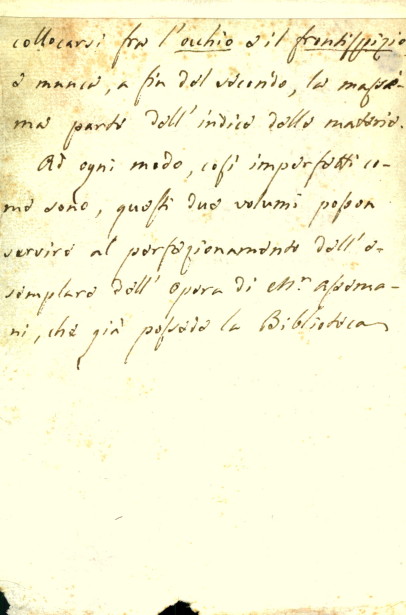 collocarsi fra l'occhio e il frontispizio
e manca, a fin del secondo, la massi-
ma parte dell'indice delle materie.
Ad ogni modo, così imperfetti co-
me sono, questi due volumi posson
servire al perfezionamento dell'e-
semplare dell'opera di Mr. Assema-
ni, che già possede la Biblioteca